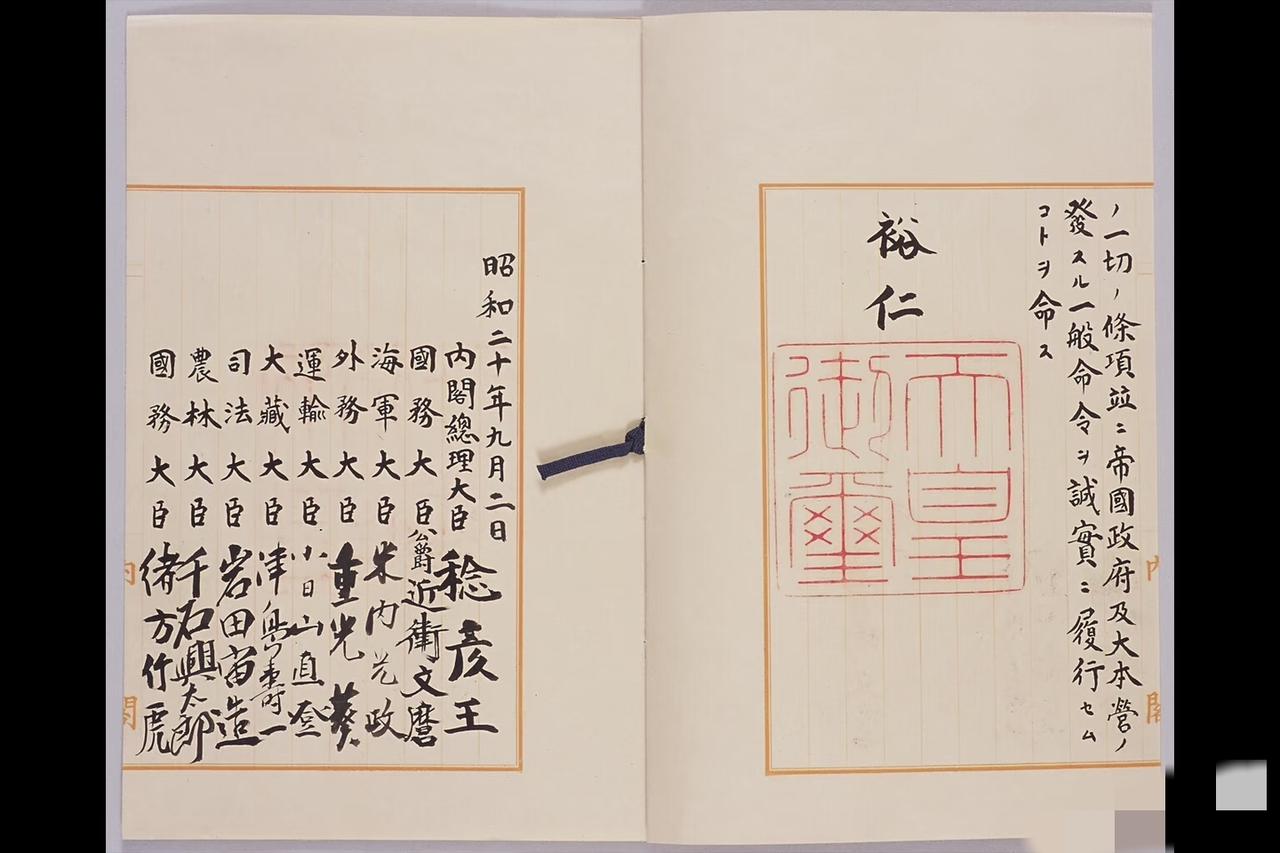 ノ一切ノ條項竝ニ帝國政府及大本營ノ
發スル一般命令ヲ誠實ニ履行セム
コトヲ命ス
裕仁
天皇御璽
昭和二十年九月二日
內閣總理大臣 稔彥王
國務大臣公爵近衛文麿
海軍大臣 米内光政
外務大臣 重光葵
運輸大臣 小日山直登
大藏大臣 津島壽一
司法大臣 岩田宙造
農林大臣 千石興太郎
國務大臣 緒方竹虎
內閣